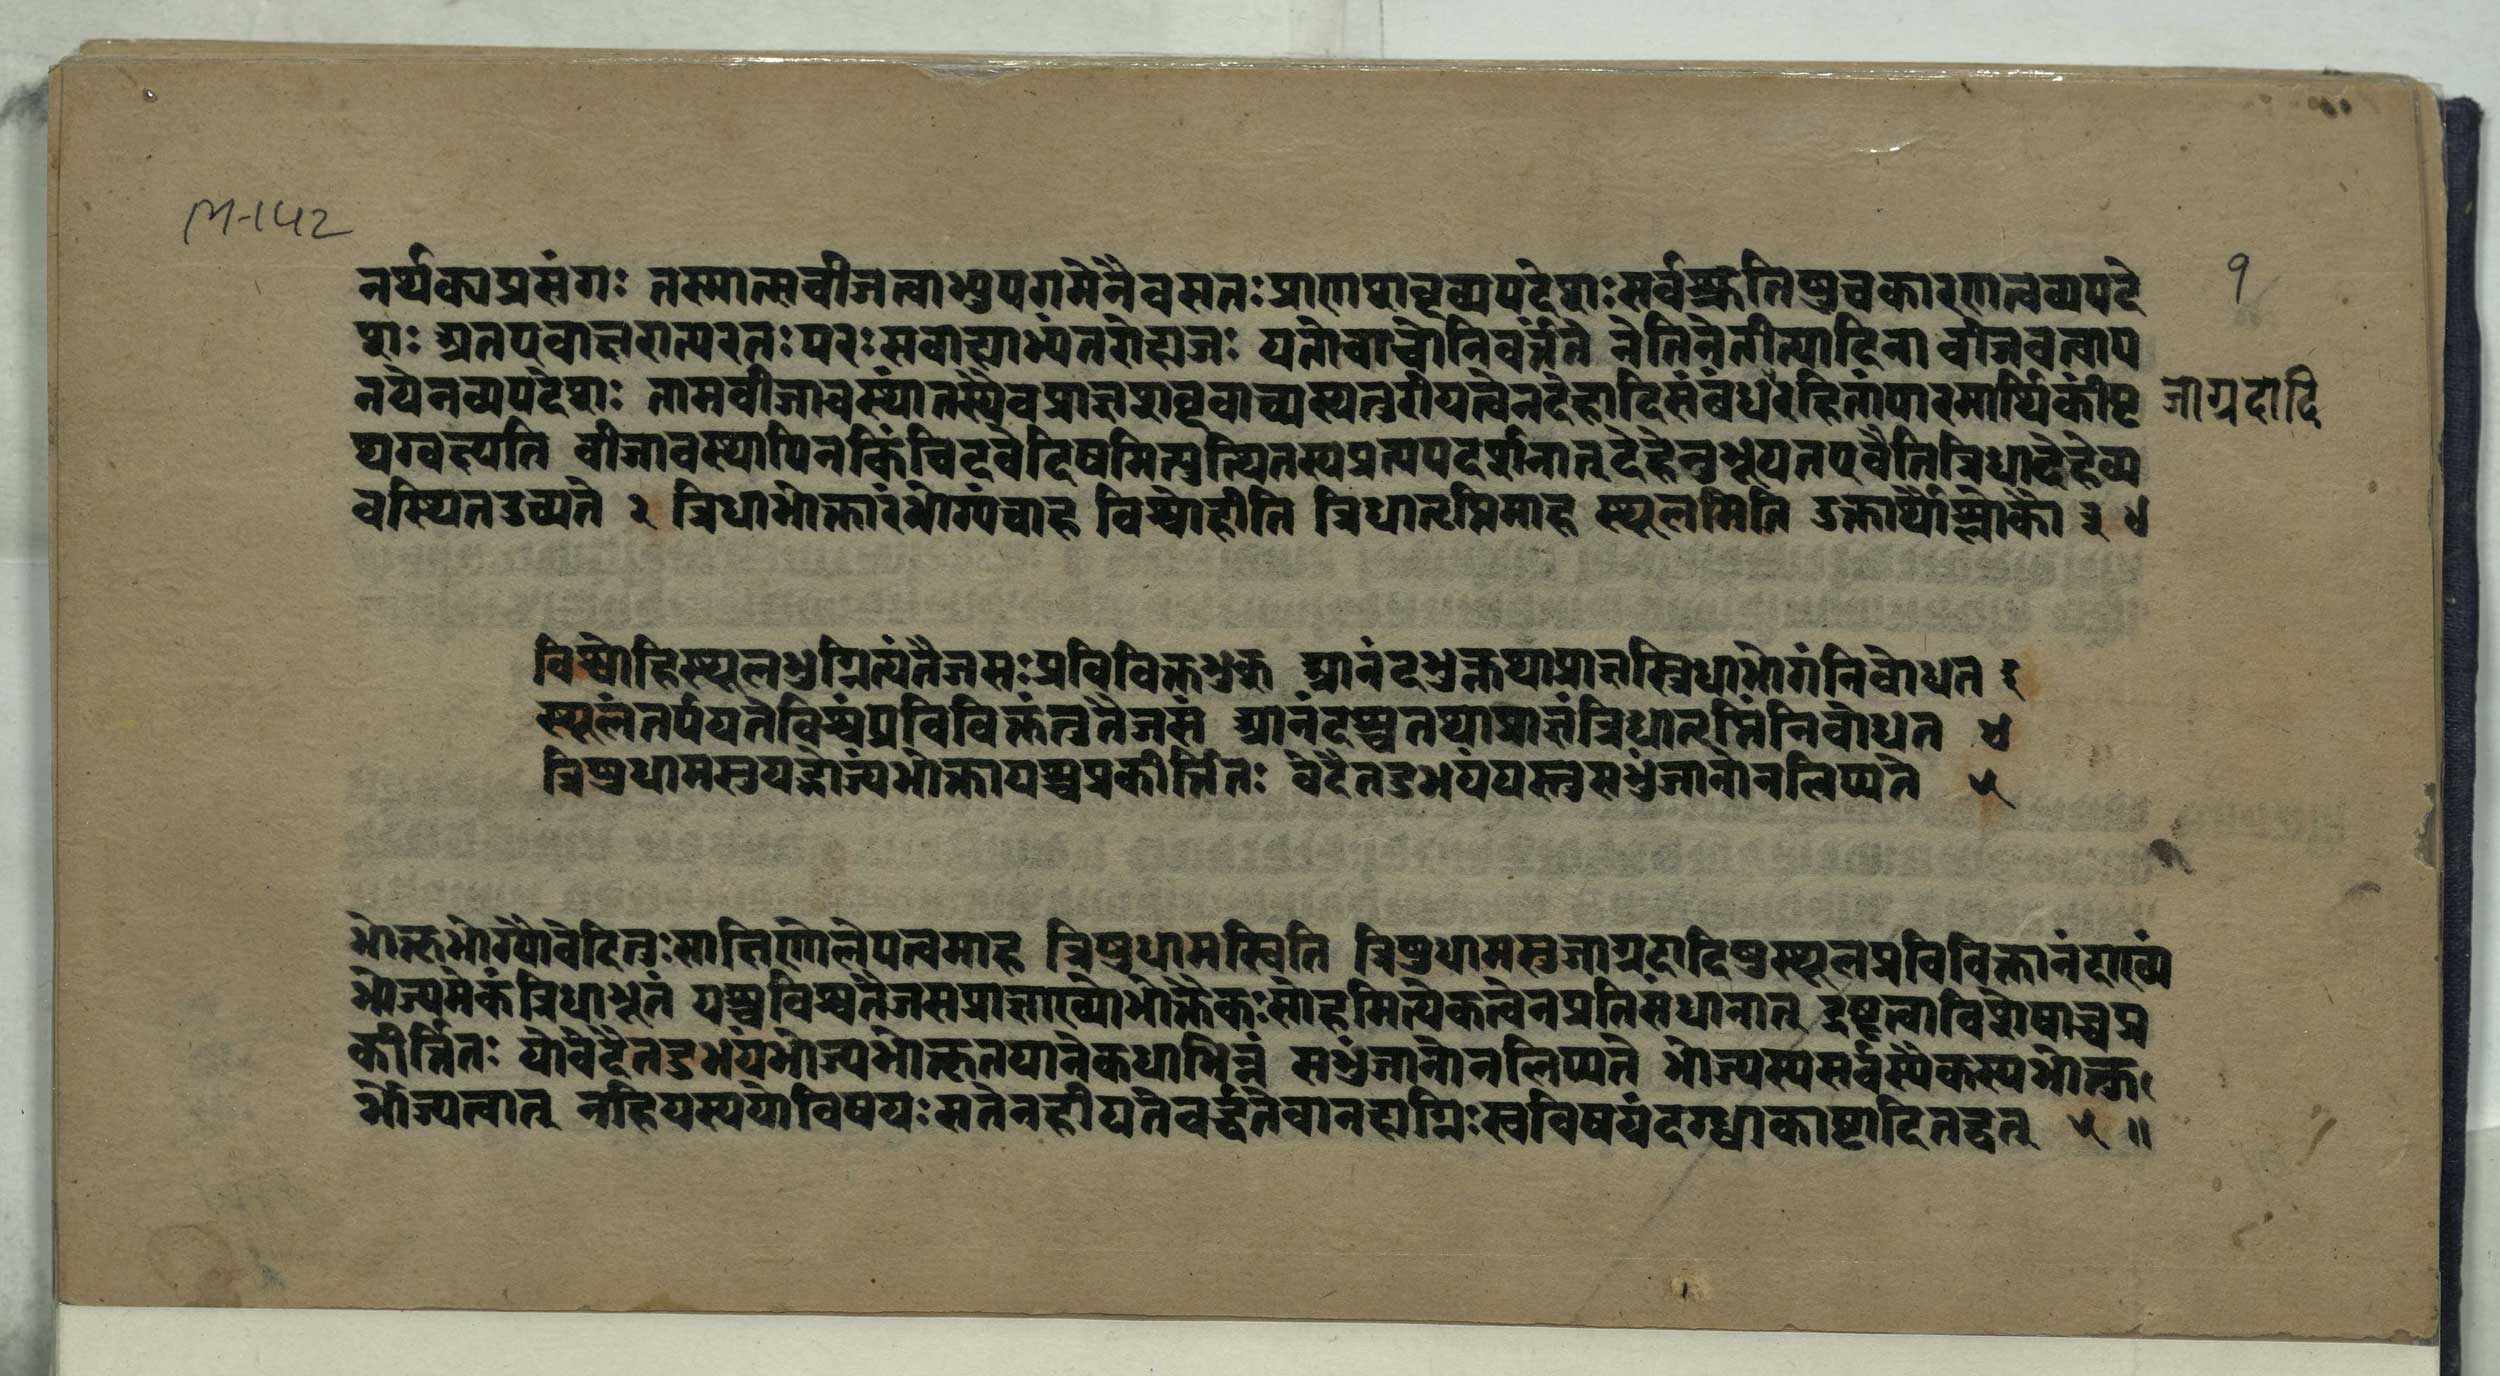 M-142
१
नर्थक्यप्रसंगः तस्मात्सबीजत्वाभ्युपगमेनैवसतः प्राणशब्दव्यपदेशः सर्वश्रुतिषुचकारणत्वव्यपदे
शः अतएवाक्षरात्परतः परः सबाह्याभ्यंतरोह्यजः यतोवाचोनिवर्त्तंते नेतिनेतीत्यादिना बीजवत्वाप
नयेनव्यपदेशः तामबीजावस्थांतस्यैवप्राज्ञशब्दवाच्यस्यतुरीयत्वेनदेहादिसंबंधरहितांपारमार्थिकींपृ
जाग्रदादि
थग्वक्ष्यति बीजावस्थापिनकिंचिदवेदिषमित्युत्थितस्यप्रत्ययदर्शनात् देहेनुभूयतएवेतित्रिधादेहेव्य
वस्थितउच्यते २ त्रिधाभोक्तारंभोग्यंचाह विश्वोहीति त्रिधातृप्तिमाह स्थूलमिति उक्तार्थौश्लोकौ ३ ४
विश्वोहिस्थूलभुग्नित्यंतैजसः प्रविविक्तभुक् आनंदभुक्तथाप्राज्ञस्त्रिधाभोगंनिबोधत ३
स्थूलंतर्पयतेविश्वंप्रविविक्तंतुतैजसं आनंदश्चतथाप्राज्ञंत्रिधातृप्तिंनिबोधत ४
त्रिषुधामसुयद्भोज्यंभोक्तायश्चप्रकीर्त्तितः वेदैतदुभयंयस्तुसभुंजानोनलिप्यते ५
भोक्तृभोग्यौवेदितुः साक्षिणोलेपत्वमाह त्रिषुधामस्विति त्रिषुधामसुजाग्रदादिषुस्थूलप्रविविक्तानंदाख्यं
भोज्यमेकंत्रिधाभूतं यश्चविश्वतैजसप्राज्ञाख्योभोक्तैकः सोहमित्येकत्वेनप्रतिसंधानात् द्रष्टृत्वाविशेषाच्चप्र
कीर्त्तितः योवेदैतदुभयंभोज्यभोक्तृतयानेकधाभिन्नं सभुंजानोनलिप्यते भोज्यस्यसर्वस्यैकस्यभोक्तु
र्भोज्यत्वात् नहियस्ययोविषयः सतेनहीयतेवर्द्धतेवानह्यग्निः स्वविषयंदग्ध्वाकाष्टादितद्वत् ५ ॥